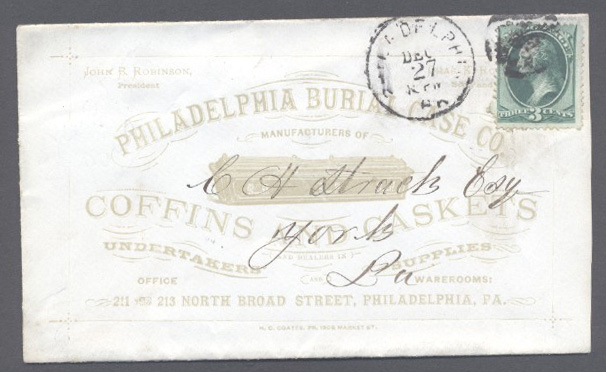 John R. Robinson,
President
PHILADELPHIA BURIAL CASE CO.
MANUFACTURERS OF
C H Strack Esq
COFFINS AND CASKETS
York
AND DEALERS IN
UNDERTAKERS SUPPLIES
Pa
OFFICE AND WAREROOMS:
211 AND 213 NORTH BROAD STREET, PHILADELPHIA, PA.
PHILADELPHIA
DEC
27
THREE 3 CENTS